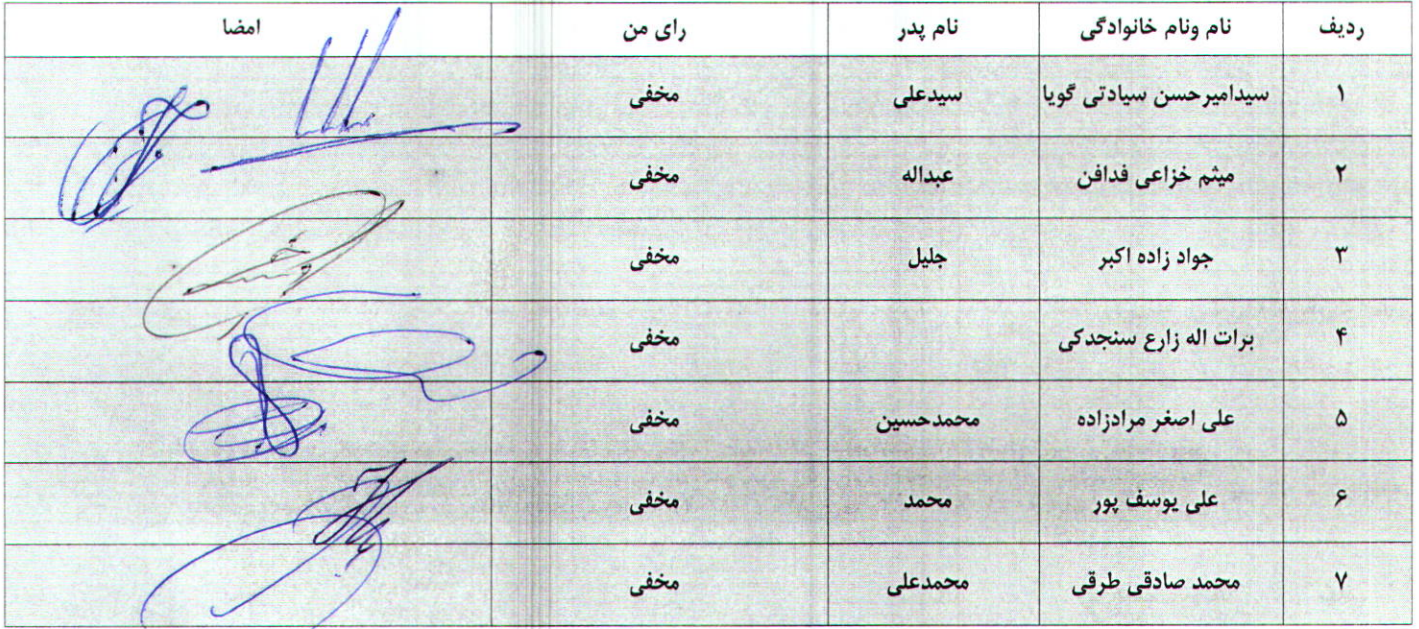 ردیف نام ونام خانوادگی نام پدر رای من امضا
۱ سیدامیرحسن سیادتی گویا سیدعلی مخفی
۲ میثم خزاعی فدافن عبداله مخفی
۳ جواد زاده اکبر جلیل مخفی
۴ برات اله زارع سنجدکی مخفی
۵ علی اصغر مرادزاده محمدحسین مخفی
۶ علی یوسف پور محمد مخفی
۷ محمد صادقی طرقی محمدعلی مخفی